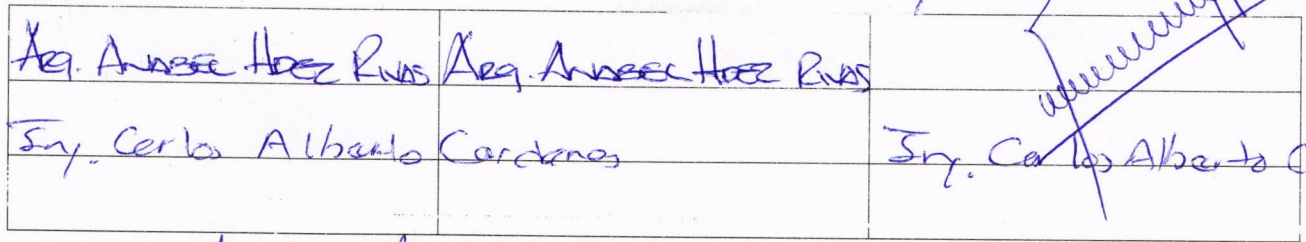 Arq. Anabel Hdez Rivas Arq. Anabel Hdez Rivas
Ing. Carlos Alberto Cardenas Ing. Carlos Alberto C